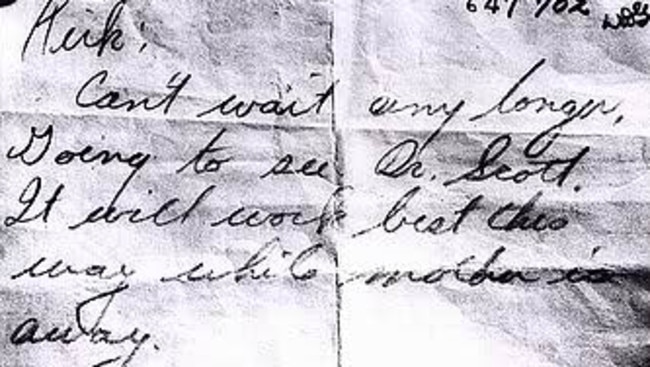 647 702
Kirk,
Can't wait any longer,
Going to see Dr. Scott.
It will work best this
way while mother is
away.